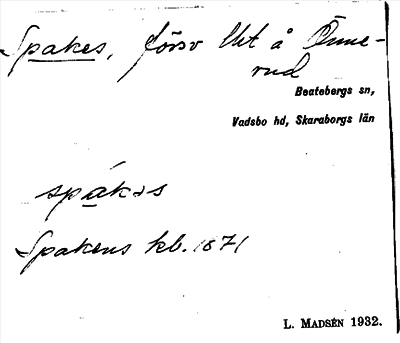 Spakes, försv lht å Önne-
rud
Beatebergs sn,
Vadsbo hd, Skaraborgs län
spákəs
Spakens kb. 1871
L. MADSÉN 1932.